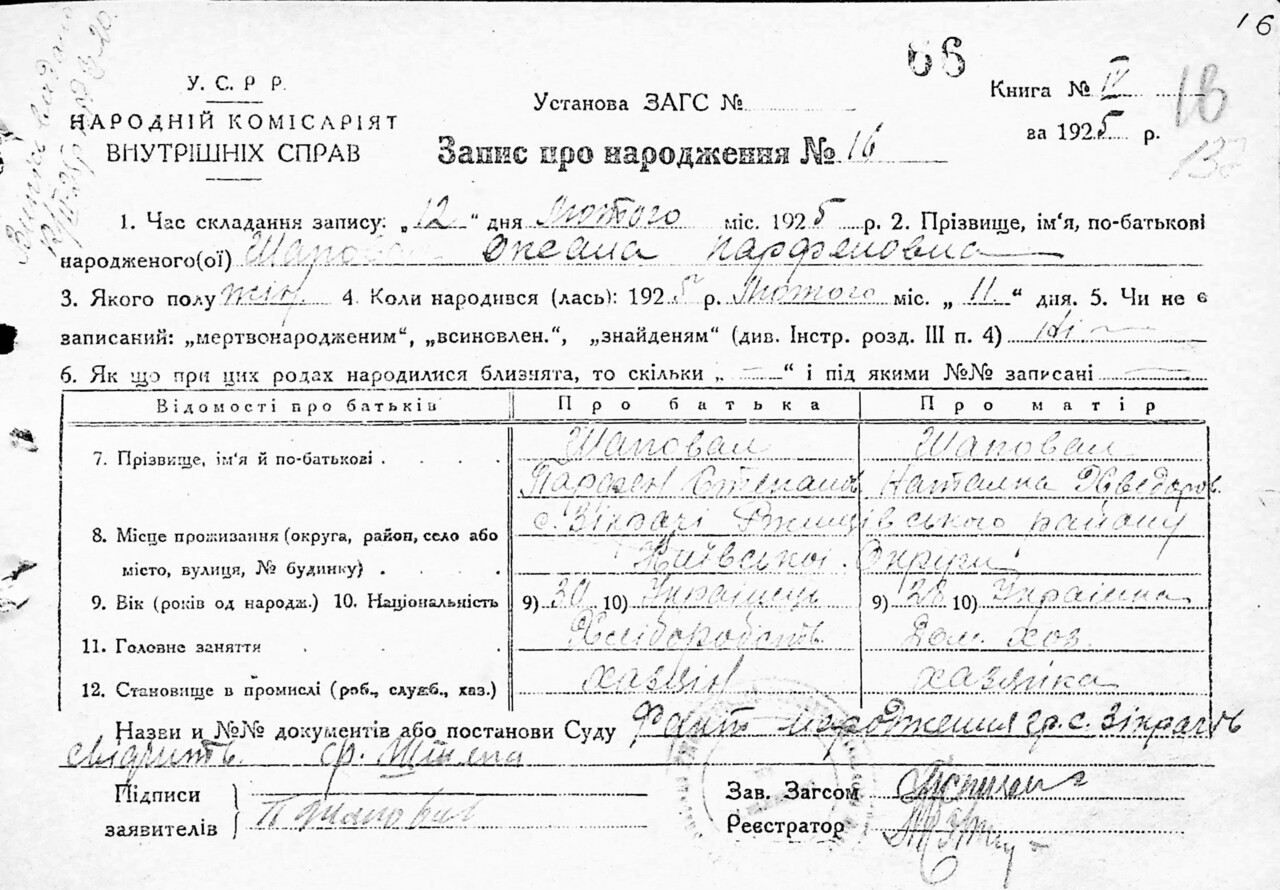 16
66
У. С. Р Р.
НАРОДНІЙ КОМІСАРІЯТ
ВНУТРІШНІХ СПРАВ
Установа ЗАГС №
Книга № IV
за 1925 р.
16
132
Запис про народження № 16
1. Час складання запису: „ 12 “ дня Лютого міс. 1925 р. 2. Прізвище, ім'я, по-батькові
народженого(ої) Шаповал Оксана Парфеновна
3. Якого полу жін. 4. Коли народився (лась): 1925 р. Лютого міс. „ 11 “ дня. 5. Чи не є
записаний: „мертвонародженим“, „всиновлен.“, „знайденям“ (див. Інстр. розд. III п. 4) Ні
6. Як що при цих родах народилися близнята, то скільки „ — “ і під якими №№ записані —
Відомості про батьків Про батька Про матір
7. Прізвище, ім'я й по-батькові . . . . Шаповал Шаповал
Парфен Степанов Наталка Хведоров.
8. Місце проживання (округа, район, село або с. Зікрачі Ржищівського району
місто, вулиця, № будинку) . . . . Київської Округи
9. Вік (років од народж.) 10. Національність 9) 30 10) Українець 9) 28 10) Українка
11. Головне заняття . . . . Хліборобств Дом. хоз.
12. Становище в промислі (роб., служб., хаз.) хазяїн хазяйка
Назви и №№ документів або постанови Суду Факт народження гр. с. Зікрачів
свідчить гр.
Підписи
заявителів
Зав. Загсом
Реєстратор